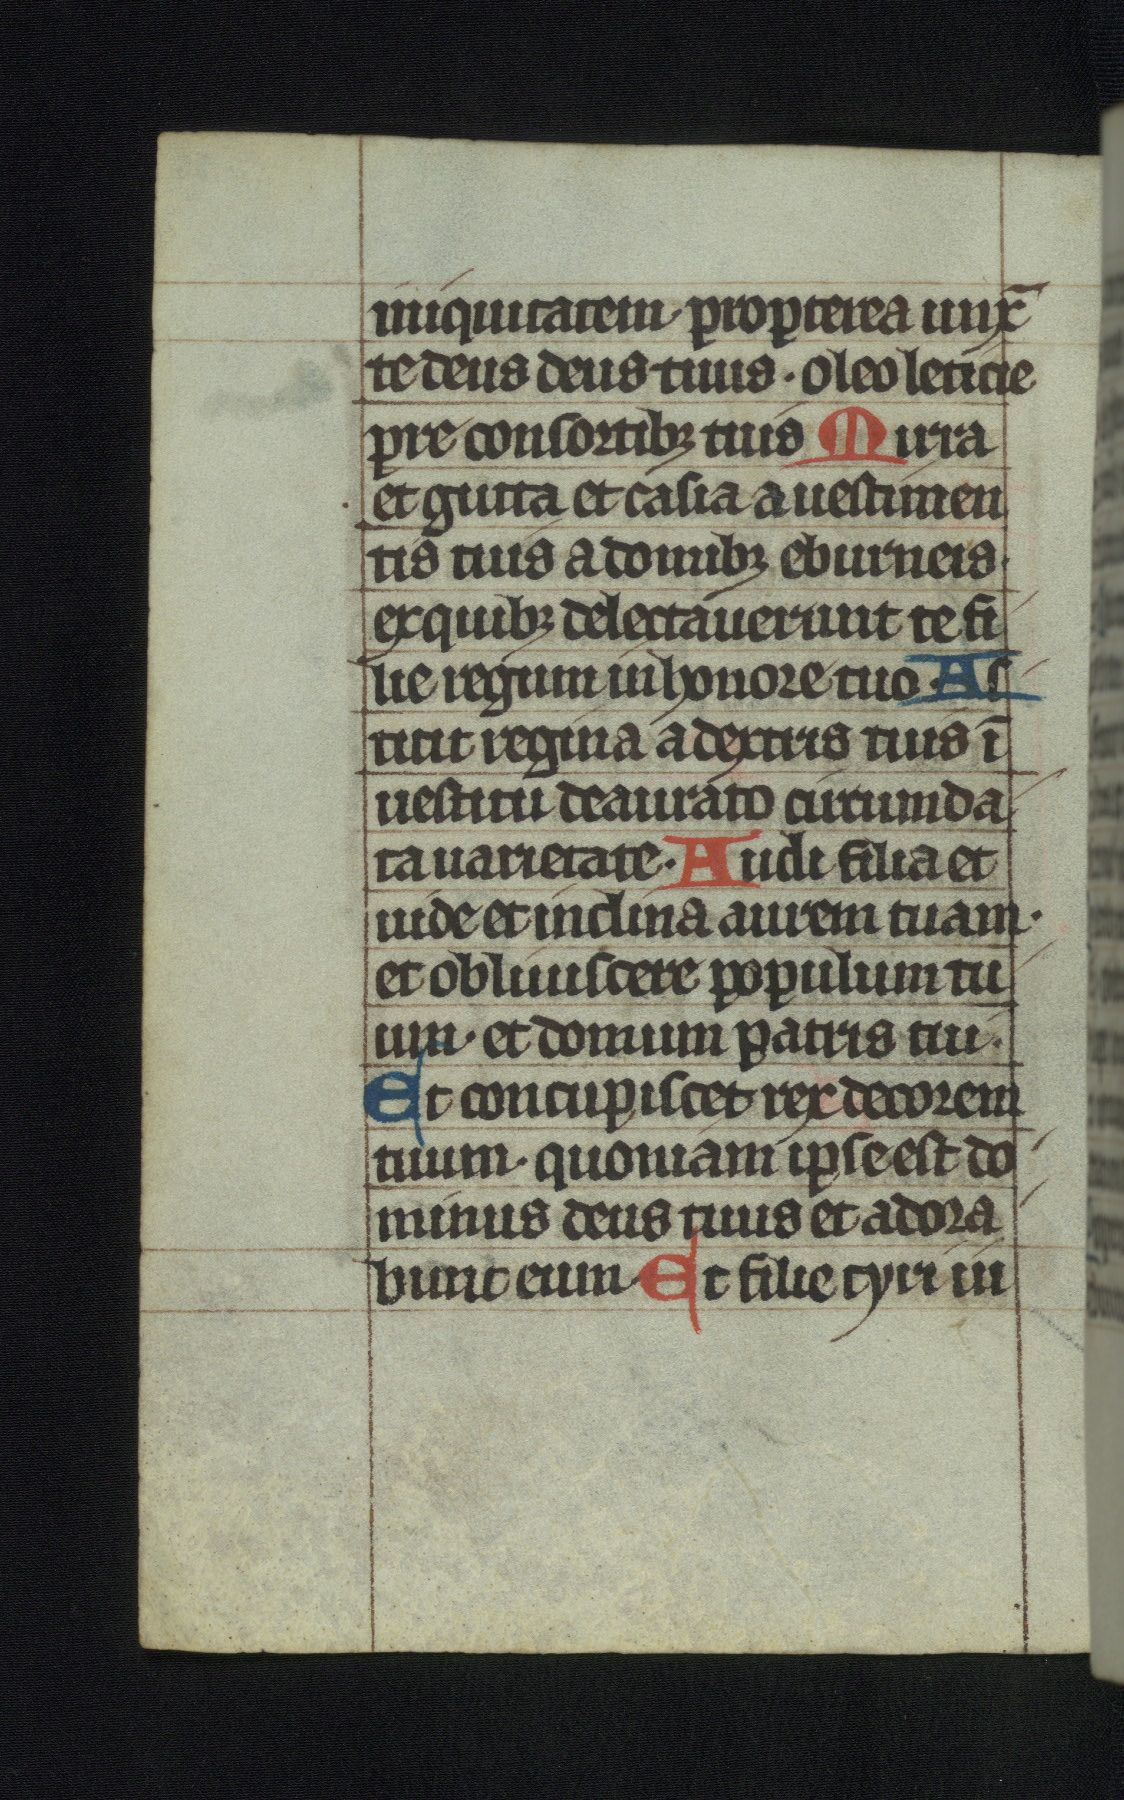 iniquitatem· propterea unx̄
te deus deus tuus· oleo leticie
pre consortibꝫ tuis Mirra
et gutta et casia a uestimen
tis tuis a domibꝫ eburneis·
ex quibꝫ delectauerunt te fi
lie regum in honore tuo· As
titit regina a dextris tuis ī
uestitu deaurato circumda
ta uarietate· Audi filia et
uide et inclina aurem tuam·
et obliuiscere populum tu
um· et domum patris tui·
Et concupiscet rex decorem
tuum· quoniam ipse est do
minus deus tuus et adora
bunt eum· Et filie tyri in